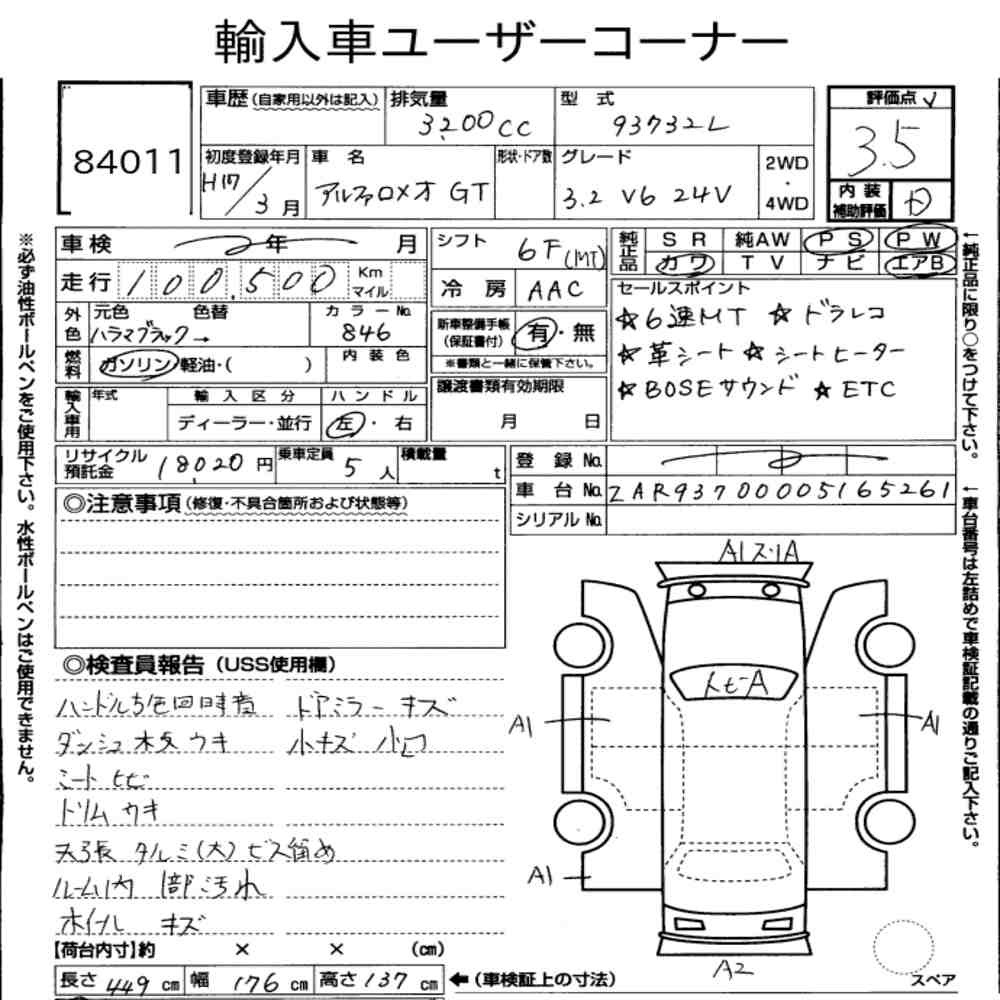 輸入車ユーザーコーナー
84011
車歴(自家用以外は記入) 排気量 3200cc 型式 93732L
初度登録年月 H17/3月 車名 アルファロメオ GT 形状・ドア数 グレード 3.2 V6 24V 2WD・4WD
評価点 3.5
内装補助評価 D
車検 年 月
走行 100,500 Km マイル
外色 元色 色替 カラーNo.
ハラマブラック→ 846
燃料 ガソリン・軽油・( ) 内装色
輸入車用 年式 輸入区分 ハンドル
ディーラー・並行 左・右
リサイクル預託金 18020円 乗車定員 5人 積載量 t
シフト 6F(MT)
冷房 AAC
新車整備手帳(保証書付) 有・無
※書類と一緒に保管下さい。
譲渡書類有効期限
月 日
純正品 SR 純AW PS PW
カワ TV ナビ エアB
セールスポイント
☆6速MT ☆ドラレコ
☆革シート☆シートヒーター
☆BOSEサウンド ☆ETC
登録No.
車台No. ZAR93700005165261
シリアルNo.
◎注意事項(修復・不具合箇所および状態等)
◎検査員報告(USS使用欄)
ドアミラー キズ
ダッシュ 木板 ウキ 小キズ 小凹
ミート ヒビ
トリム ウキ
天張 タルミ(大) ビス留め
ルーム内 部汚れ
ホイル キズ
【荷台内寸】約 × × (cm)
長さ 449 cm 幅 176 cm 高さ 137 cm ←(車検証上の寸法)
A1
A1
A1
A
A2
スペア
※必ず油性ボールペンをご使用下さい。水性ボールペンはご使用できません。
←純正品に限り○をつけて下さい。
←車台番号は左詰めで車検証記載の通りご記入下さい。